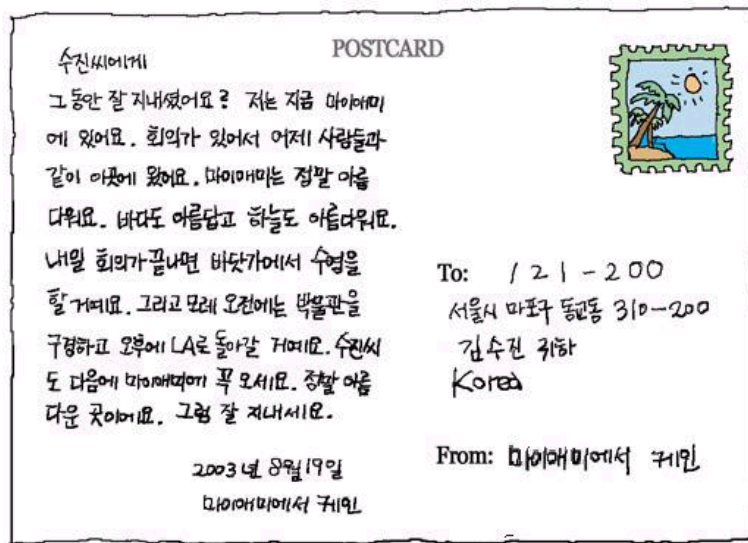 POSTCARD
수진씨에게
그동안 잘 지내셨어요? 저는 지금 마이애미
에 있어요. 회의가 있어서 어제 사람들과
같이 이곳에 왔어요. 마이애미는 정말 아름
다워요. 바다도 아름답고 하늘도 아름다워요.
내일 회의가 끝나면 바닷가에서 수영을
할 거예요. 그리고 모레 오전에는 박물관을
구경하고 오후에 LA로 돌아갈 거예요. 수진씨
도 다음에 마이애미에 꼭 오세요. 정말 아름
다운 곳이에요. 그럼 잘 지내세요.
2003년 8월 19일
마이애미에서 케인
To: 121-200
서울시 마포구 동교동 310-200
김수진 귀하
Korea
From: 마이애미에서 케인